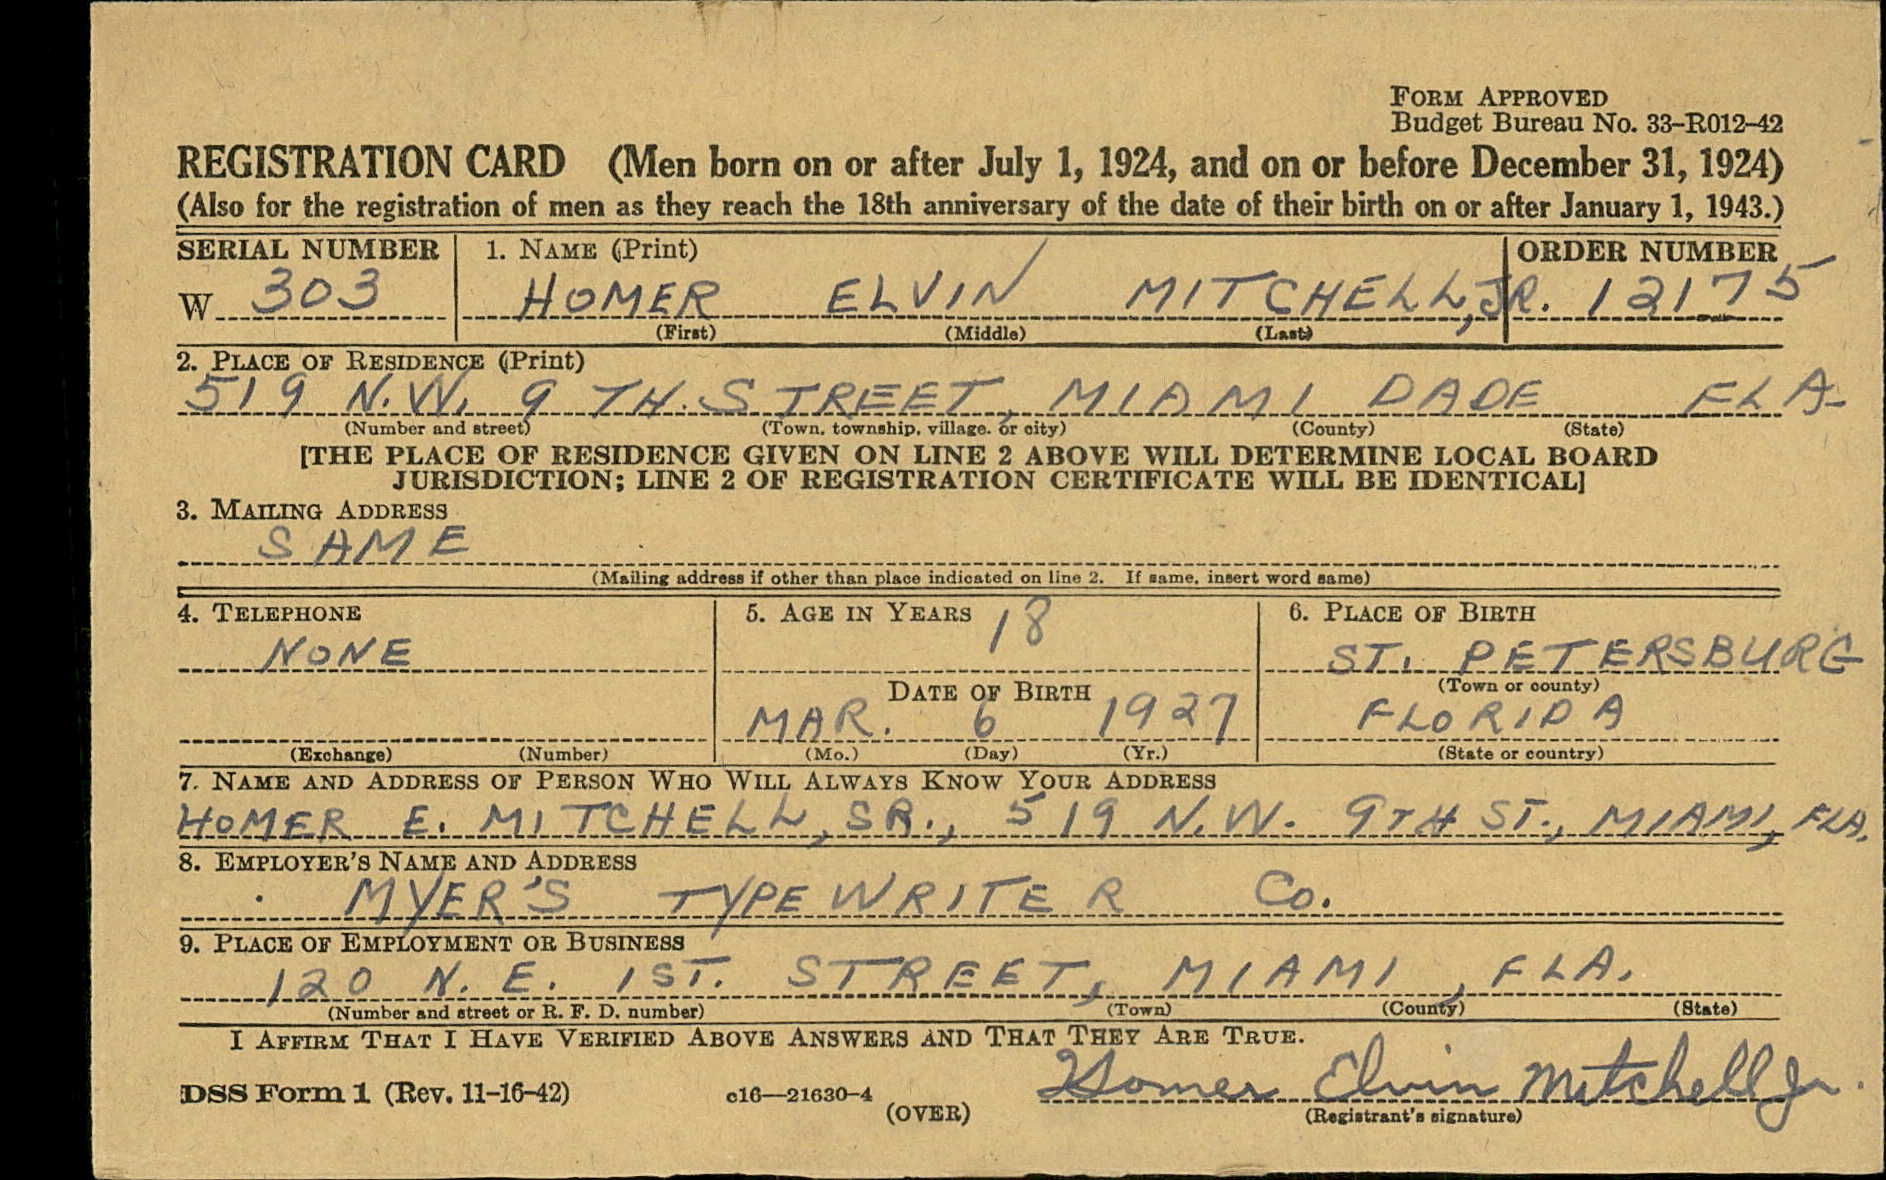 FORM APPROVED
Budget Bureau No. 33-R012-42
REGISTRATION CARD (Men born on or after July 1, 1924, and on or before December 31, 1924)
(Also for the registration of men as they reach the 18th anniversary of the date of their birth on or after January 1, 1943.)
SERIAL NUMBER 1. NAME (Print) ORDER NUMBER
W 303 HOMER ELVIN MITCHELL, JR. 12175
(First) (Middle) (Last)
2. PLACE OF RESIDENCE (Print)
519 N.W. 9 TH. STREET, MIAMI DADE FLA-
(Number and street) (Town, township, village, or city) (County) (State)
[THE PLACE OF RESIDENCE GIVEN ON LINE 2 ABOVE WILL DETERMINE LOCAL BOARD
JURISDICTION; LINE 2 OF REGISTRATION CERTIFICATE WILL BE IDENTICAL]
3. MAILING ADDRESS
SAME
(Mailing address if other than place indicated on line 2. If same, insert word same)
4. TELEPHONE 5. AGE IN YEARS 6. PLACE OF BIRTH
NONE 18 ST. PETERSBURG
(Town or county)
DATE OF BIRTH
MAR. 6 1927 FLORIDA
(Exchange) (Number) (Mo.) (Day) (Yr.) (State or country)
7. NAME AND ADDRESS OF PERSON WHO WILL ALWAYS KNOW YOUR ADDRESS
HOMER E. MITCHELL, SR., 519 N.W. 9TH ST., MIAMI, FLA.
8. EMPLOYER'S NAME AND ADDRESS
MYER'S TYPEWRITER Co.
9. PLACE OF EMPLOYMENT OR BUSINESS
120 N. E. 1ST. STREET, MIAMI, FLA.
(Number and street or R. F. D. number) (Town) (County) (State)
I AFFIRM THAT I HAVE VERIFIED ABOVE ANSWERS AND THAT THEY ARE TRUE.
DSS Form 1 (Rev. 11-16-42) c16—21630-4 (OVER) Homer Elvin Mitchell Jr.
(Registrant's signature)